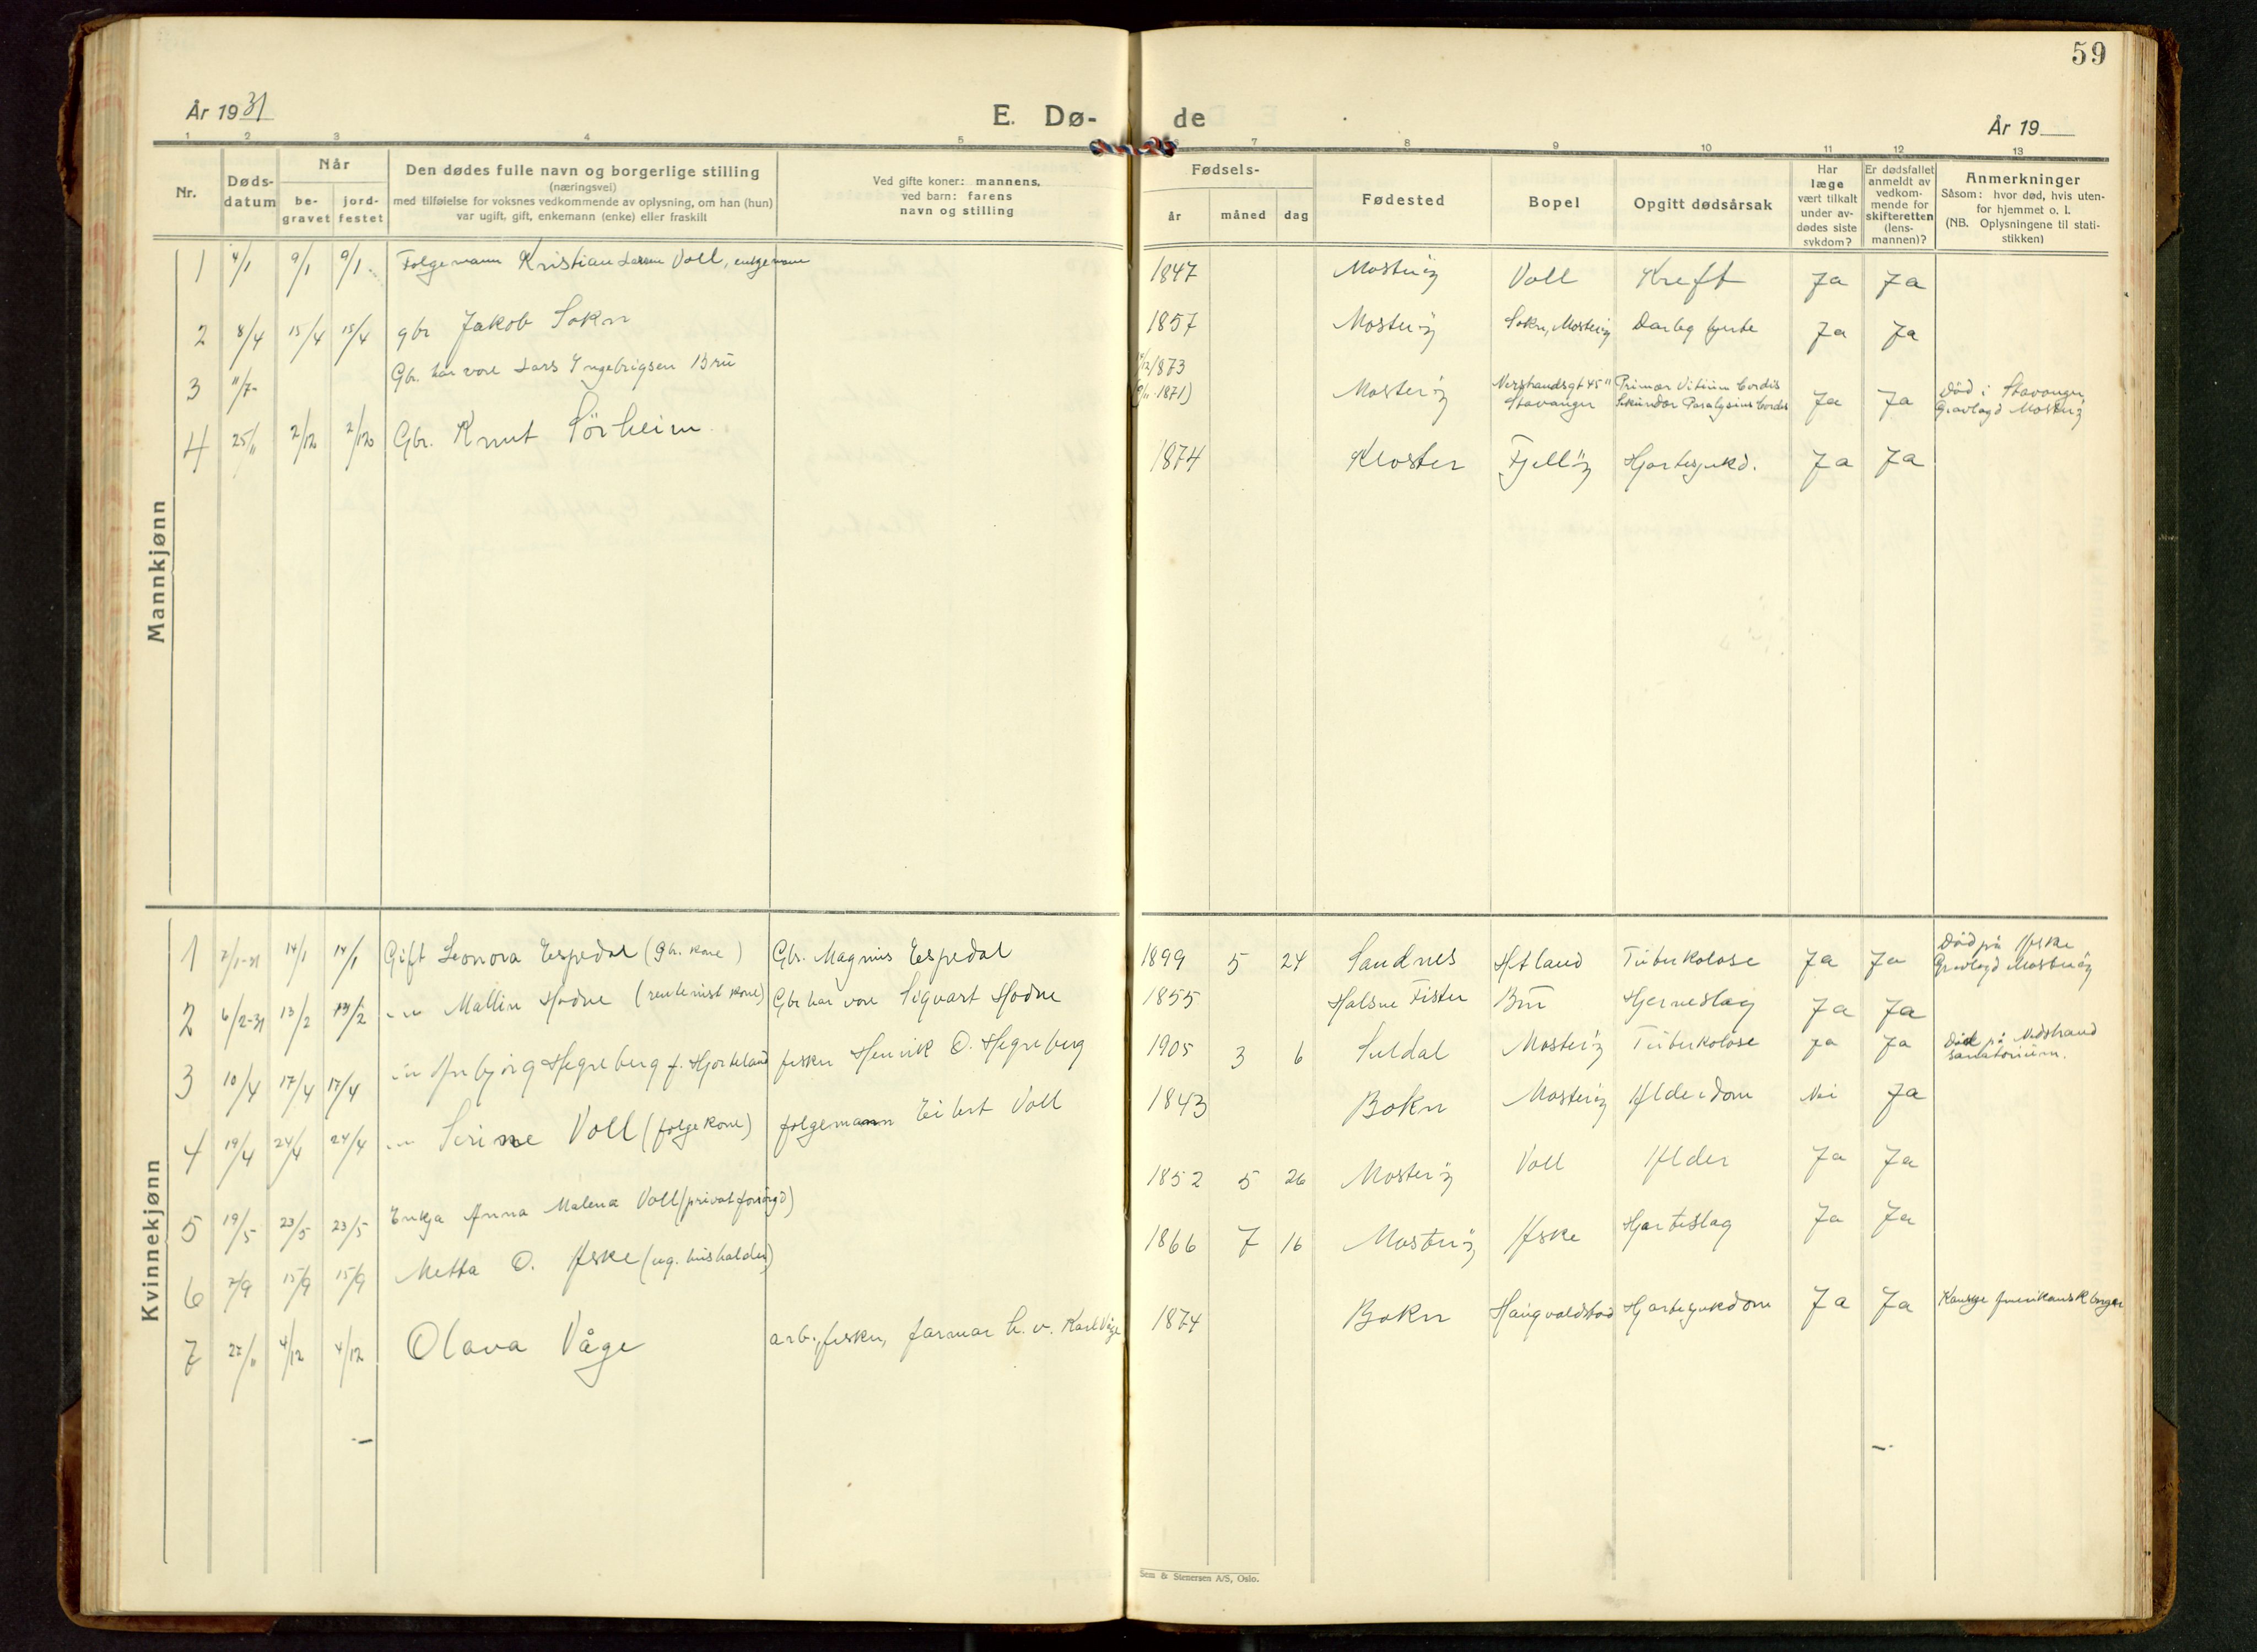 59
År 1931
E. Dø-
de
År 19
1 2 3 4 5 6 7 8 9 10 11 12 13
Nr.
Døds-
datum
Når
be-
gravet
jord-
festet
Den dødes fulle navn og borgerlige stilling
(næringsvei)
med tilføielse for voksnes vedkommende av oplysning, om han (hun)
var ugift, gift, enkemann (enke) eller fraskilt
Ved gifte koner: mannens,
ved barn: farens
navn og stilling
Fødsels-
år måned dag
Fødested
Bopel
Opgitt dødsårsak
Har
læge
vært tilkalt
under av-
dødes siste
sykdom?
Er dødsfallet
anmeldt av
vedkom-
mende for
skifteretten
(lens-
mannen)?
Anmerkninger
Såsom: hvor død, hvis uten-
for hjemmet o. l.
(NB. Oplysningene til stati-
stikken)
Mannkjønn
1 4/1 9/1 9/1 Folgemann Kristian Larsen Voll, enkjemann 1847 Mosterøy Voll Kreft Ja Ja
2 8/4 15/4 15/4 gbr Jakob Sokn 1857 Mosterøy Sokn, Mosterøy Darleg hjerte Ja Ja
3 11/7- Gbr. har vore Lars Yngebrigsen Bru
/12 1873
(9/11 1871) Mosterøy
45"
Stavanger
Primær Vitium Cordis
Sekundær Paralysins Cordis
Ja Ja
Död i Stavanger
Gravlagd Mosterøy
4 25/11 2/12 2/12 Gbr. Knut Sörheim 1874 Kloster Fjellöy Hjartesjukd. Ja Ja
Kvinnekjønn
1 7/1-31 14/1 14/1 Gift Leonora Espedal (gbr. kone) Gbr. Magnus Espedal 1899 5 24 Sandnes Hetland Tuberkolose Ja Ja
Död på Aske
Gravlagd Mosterøy
2 6/2-31 13/2 13/2 -"- Mallin Hodne (rentenist kone) Gbr har vore Sigvart Hodne 1855 Halsne Fister Bru Hjerneslag Ja Ja
3 10/4 17/4 17/4 -"- Anbjørg Hegreberg f. Hjorteland fisker Henrik O. Hegreberg 1905 3 6 Suldal Mosteröy Tuberkolose Ja Ja
Död på Nedstrand
sanatorium.
4 19/4 24/4 24/4 -"- Serine Voll (folgekone) folgemann Eilert Voll 1843 Bokn Mosteröy Alderdom Nei Ja
5 19/5 23/5 23/5 Enkja Anna Malena Voll (privat forsörgd) 1852 5 26 Mosteröy Voll Alder Ja Ja
6 7/9 15/9 15/9 Metta O. Aske (ug. husholder) 1866 7 16 Mosteröy Aske Hjarteslag Ja Ja
7 27/11 4/12 4/12 Olava Våge arb., fisker, farmar h. v. Karl Våge 1874 Bokn Haugvaldstad Hjartesjukdom Ja Ja Kanskje Amerikansk borgar
Sem & Stenersen A/S, Oslo.